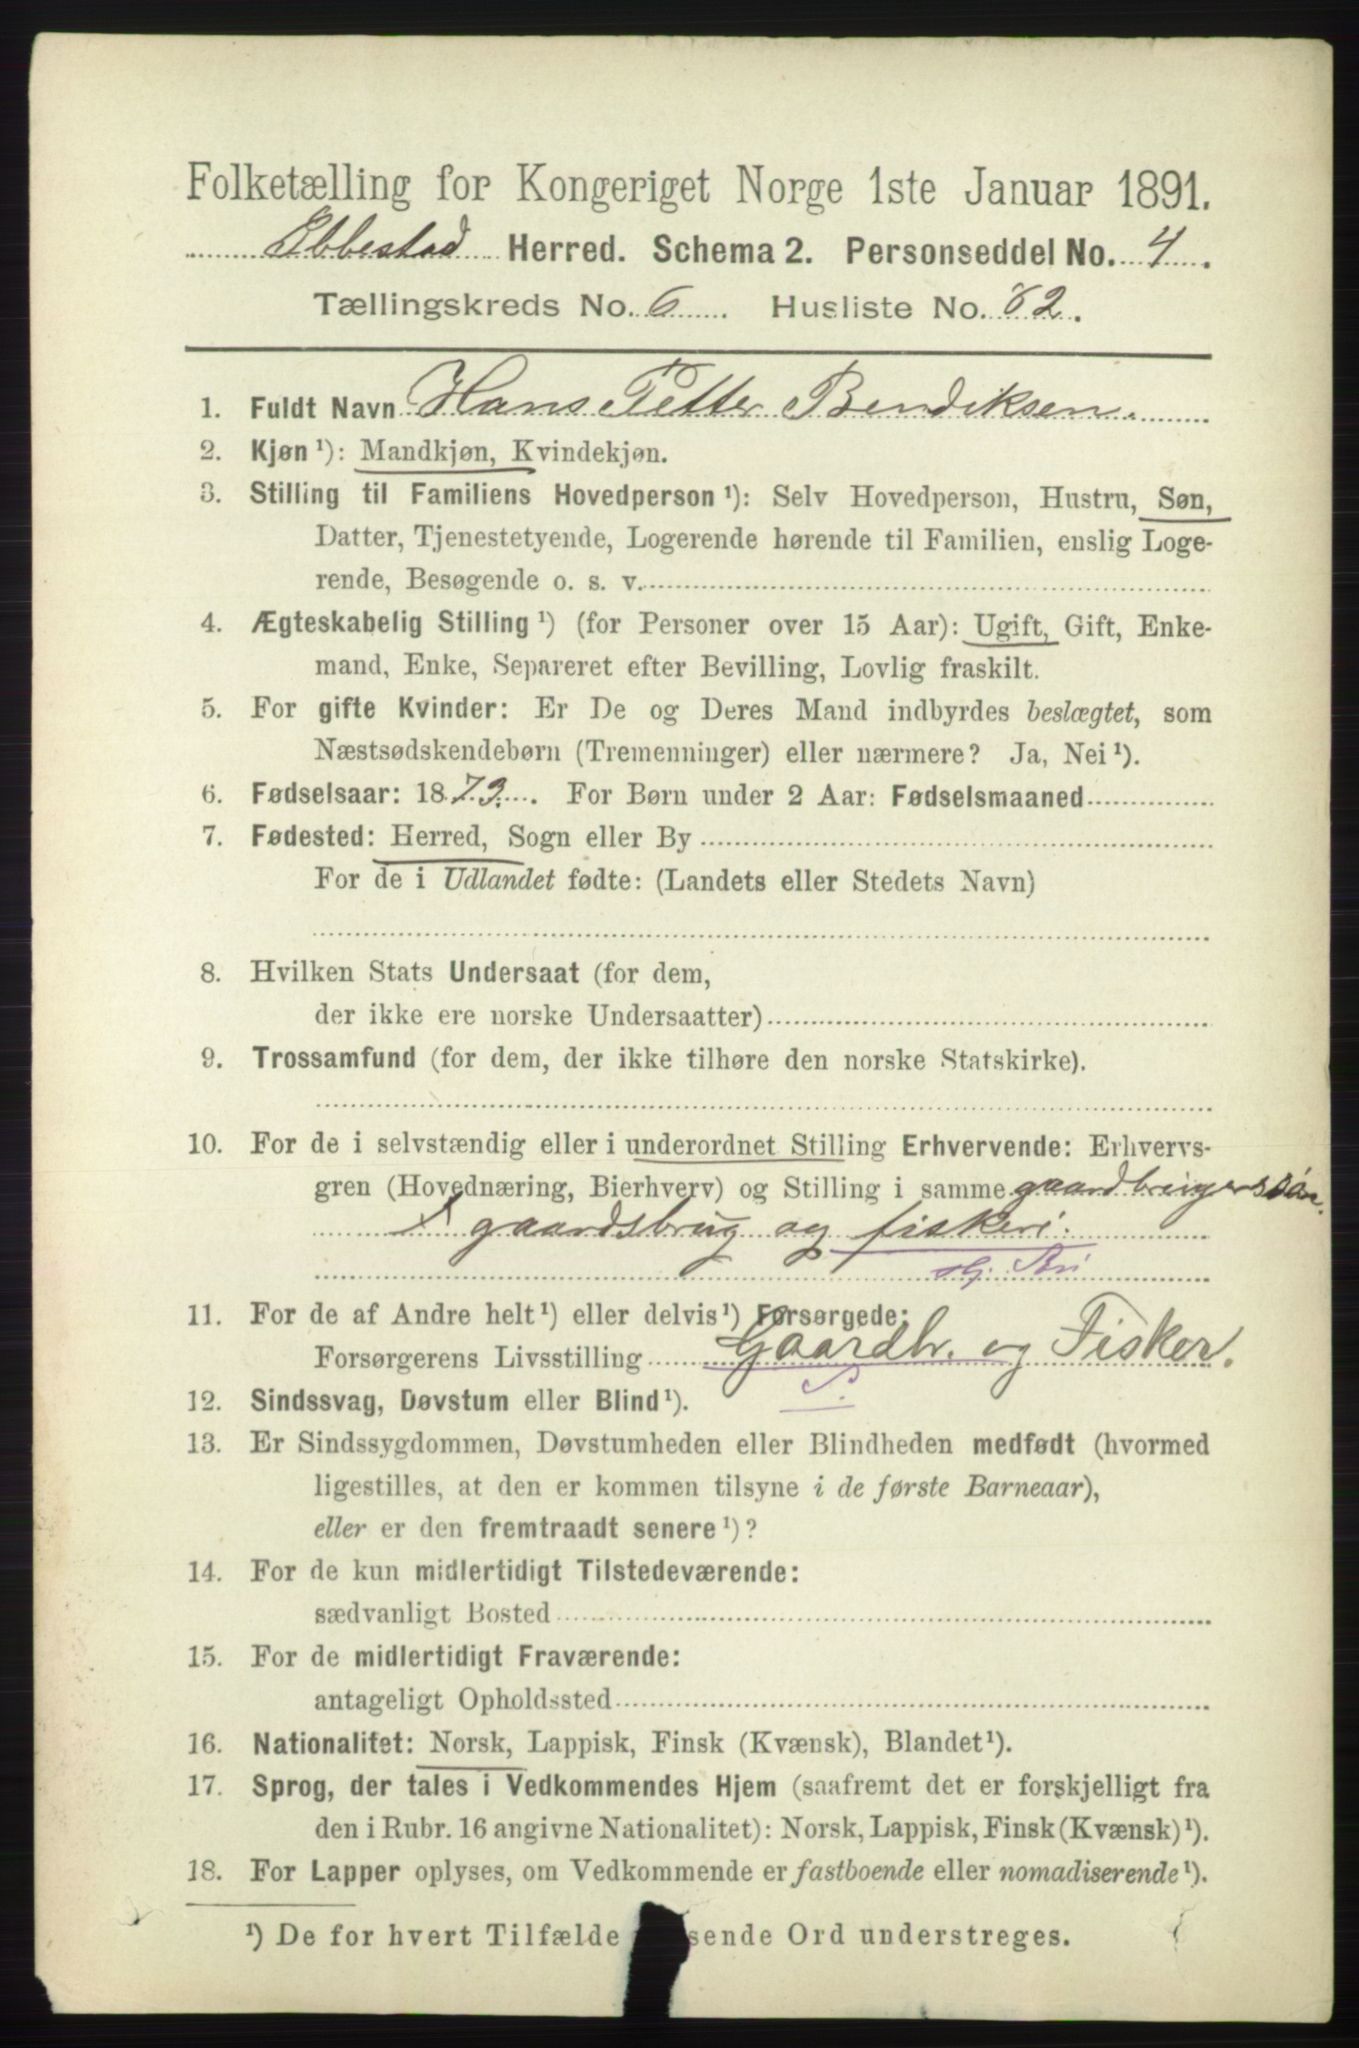 Folketælling for Kongeriget Norge 1ste Januar 1891.
Ibbestad Herred. Schema 2. Personseddel No. 4.
Tællingskreds No. 6. Husliste No. 62.
1. Fuldt Navn Hans Petter Bendiksen.
2. Kjøn¹): Mandkjøn, Kvindekjøn.
3. Stilling til Familiens Hovedperson¹): Selv Hovedperson, Hustru, Søn,
Datter, Tjenestetyende, Logerende hørende til Familien, enslig Loge-
rende, Besøgende o. s. v.
4. Ægteskabelig Stilling¹) (for Personer over 15 Aar): Ugift, Gift, Enke-
mand, Enke, Separeret efter Bevilling, Lovlig fraskilt.
5. For gifte Kvinder: Er De og Deres Mand indbyrdes beslægtet, som
Næstsødskendebørn (Tremenninger) eller nærmere? Ja, Nei¹).
6. Fødselsaar: 1873. For Børn under 2 Aar: Fødselsmaaned
7. Fødested: Herred, Sogn eller By
For de i Udlandet fødte: (Landets eller Stedets Navn)
8. Hvilken Stats Undersaat (for dem,
der ikke ere norske Undersaatter)
9. Trossamfund (for dem, der ikke tilhøre den norske Statskirke).
10. For de i selvstændig eller i underordnet Stilling Erhvervende: Erhvervs-
gren (Hovednæring, Bierhverv) og Stilling i samme gaardbrugerssøn.
I gaardsbrug og fiskeri.
11. For de af Andre helt¹) eller delvis¹) Forsørgede:
Forsørgerens Livsstilling Gaardbr. og Fisker.
S.
12. Sindssvag, Døvstum eller Blind¹).
13. Er Sindssygdommen, Døvstumheden eller Blindheden medfødt (hvormed
ligestilles, at den er kommen tilsyne i de første Barneaar),
eller er den fremtraadt senere¹)?
14. For de kun midlertidigt Tilstedeværende:
sædvanligt Bosted
15. For de midlertidigt Fraværende:
antageligt Opholdssted
16. Nationalitet: Norsk, Lappisk, Finsk (Kvænsk), Blandet¹).
17. Sprog, der tales i Vedkommendes Hjem (saafremt det er forskjelligt fra
den i Rubr. 16 angivne Nationalitet): Norsk, Lappisk, Finsk (Kvænsk)¹).
18. For Lapper oplyses, om Vedkommende er fastboende eller nomadiserende¹).
¹) De for hvert Tilfælde sende Ord understreges.